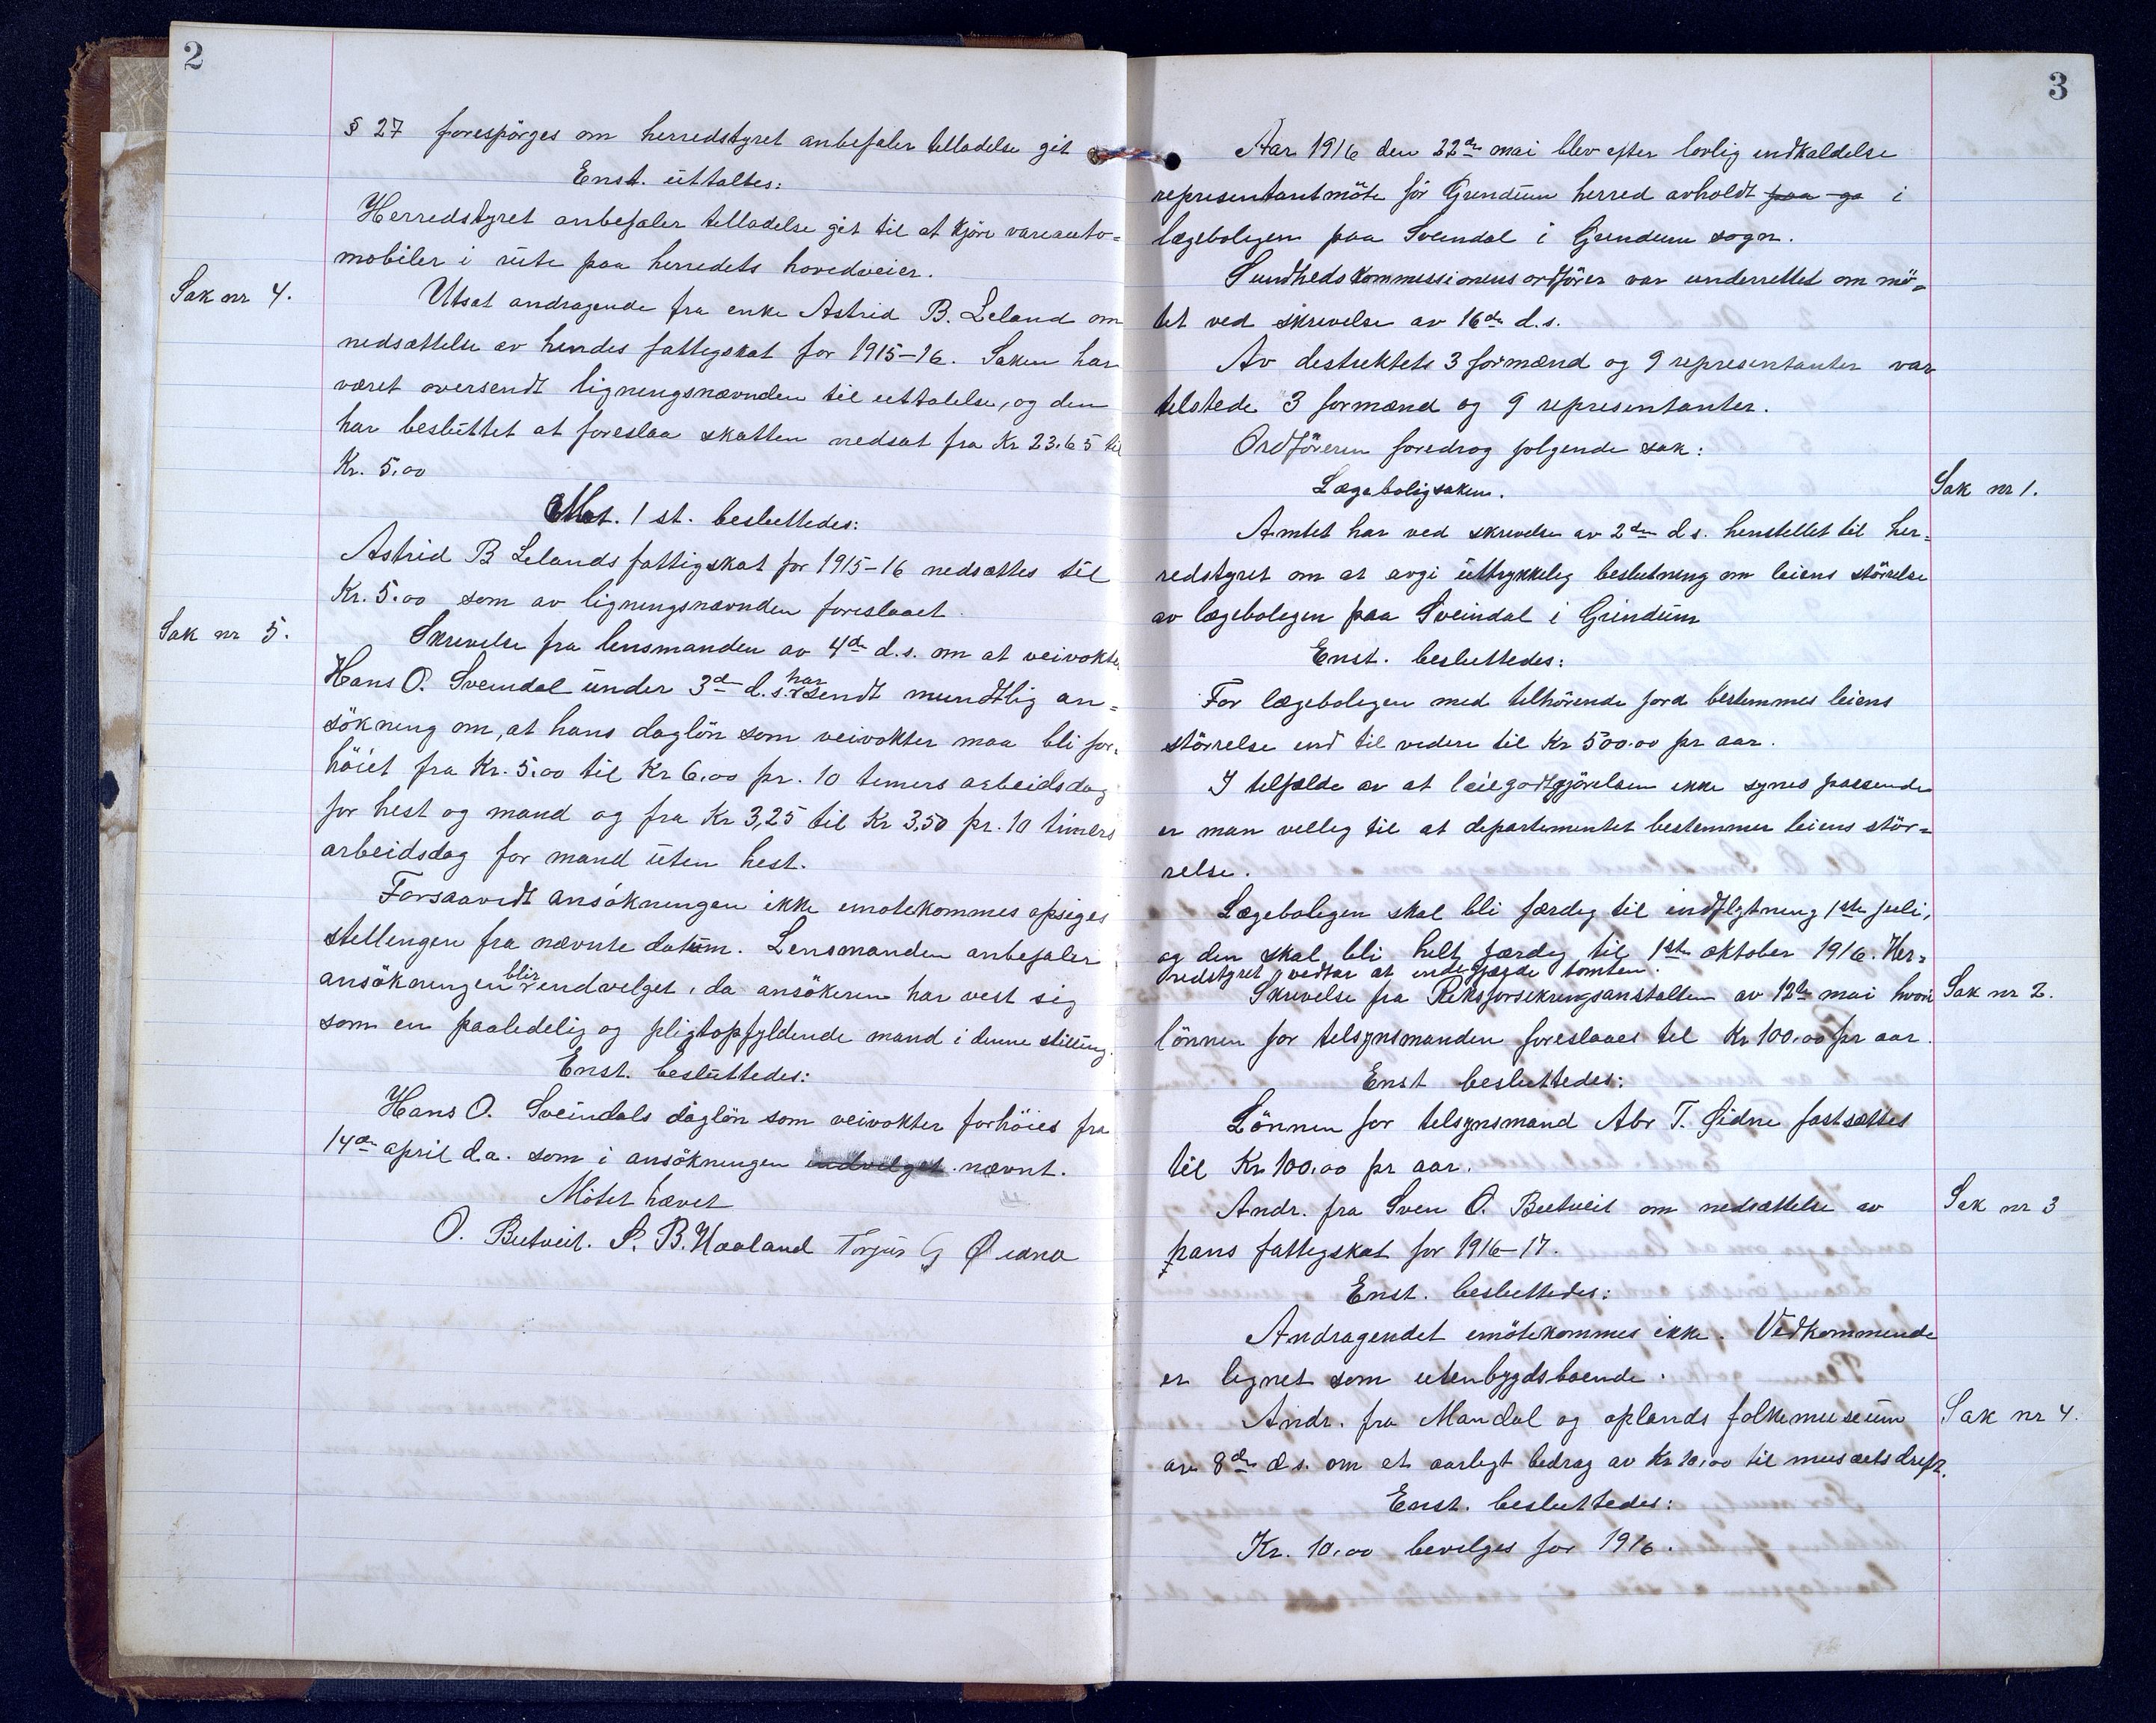 2
§ 27 forespörges om herredstyret anbefaler tilladelse git
Enst. uttaltes:
Herredstyret anbefaler tilladelse git til at kjöre vareauto=
mobiler i rute paa herredets hovedveier.
Sak nr 4.
Utsat andragende fra enke Astrid B. Leland om
nedsættelse av hendes fattigskat for 1915-16. Saken har
været oversendt ligningsnævnden til uttalelse, og den
har besluttet at foreslaa skatten nedsat fra Kr 23.65 til
Kr. 5,00
Mot. 1 st. besluttedes:
Astrid B Lelands fattigskat for 1915-16 nedsættes til
Kr. 5.00 som av ligningsnævnden foreslaaet.
Sak nr 5.
Skrivelse fra lensmanden av 4de d.s. om at veivokter
Hans O. Sveindal under 3d d.s. har sendt mundtlig an=
sökning om, at hans daglön som veivokter maa bli for=
höiet fra Kr. 5.00 til Kr 6,00 pr. 10 timers arbeidsdag
for hest og mand og fra Kr 3,25 til Kr 3,50 pr. 10 timers
arbeidsdag for mand uten hest.
Forsaavidt ansökningen ikke imotekommes opsiges
stillingen fra nævnte datum. Lensmanden anbefaler
ansökningen blir indvilget, da ansökeren har vist sig
som en paalidelig og pligtopfyldende mand i denne stilling.
Enst. besluttedes:
Hans O. Sveindals daglön som veivokter forhöies fra
14de april d.a. som i ansökningen indvilget nævnt.
Mötet hævet
O. Butveit. S. B. Haaland Torjus G Øidna
3
Aar 1916 den 22de mai blev efter lovlig indkaldelse
representantmöte för Grindum herred avholdt paa ga i
lægeboligen paa Sveindal i Grindum sogn.
Sundhedskommissionens ordförer var underrettet om mö=
tet ved skrivelse av 16de d.s.
Av distriktets 3 formænd og 9 representanter var
tilstede 3 formænd og 9 representanter.
Ordföreren foredrog folgende sak:
Lægeboligsaken.
Sak nr 1.
Amtet har ved skrivelse av 2den d s. henstillet til her=
redstyret om at avgi uttrykkelig beslutning om leiens störrelse
av lægeboligen paa Sveindal i Grindum
Enst. besluttedes:
For lægeboligen med tilhörende jord bestemmes leiens
störrelse ind til videre til Kr 500.00 pr aar.
I tilfælde av at leiegodtgjörelsen ikke synes passende
er man villig til at departementet bestemmer leiens stör=
relse.
Lægeboligen skal bli færdig til indflytning 1ste juli,
og den skal bli helt færdig til 1ste oktober 1916. Her=
redstyret vedtar at indegjærde tomten.
Skrivelse fra Riksforsikringsanstalten av 12te mai hvori
Sak nr 2.
lönnen for tilsynsmanden foreslaaes til Kr 100.00 pr aar.
Enst besluttedes:
Lönnen for tilsynsmand Abr T. Øidne fastsættes
til Kr. 100,00 pr aar.
Andr. fra Sven O. Butveit om nedsættelse av
Sak nr 3
hans fattigskat for 1916-17.
Enst. besluttedes:
Andragendet imötekommes ikke. Vedkommende
er lignet som utenbygdsboende.
Andr. fra Mandal og oplands folkemuseum
Sak nr 4.
av 8de d.s. om et aarligt bidrag av Kr 10,00 til musæets drift.
Enst. besluttedes:
Kr. 10,00 bevilges for 1916.